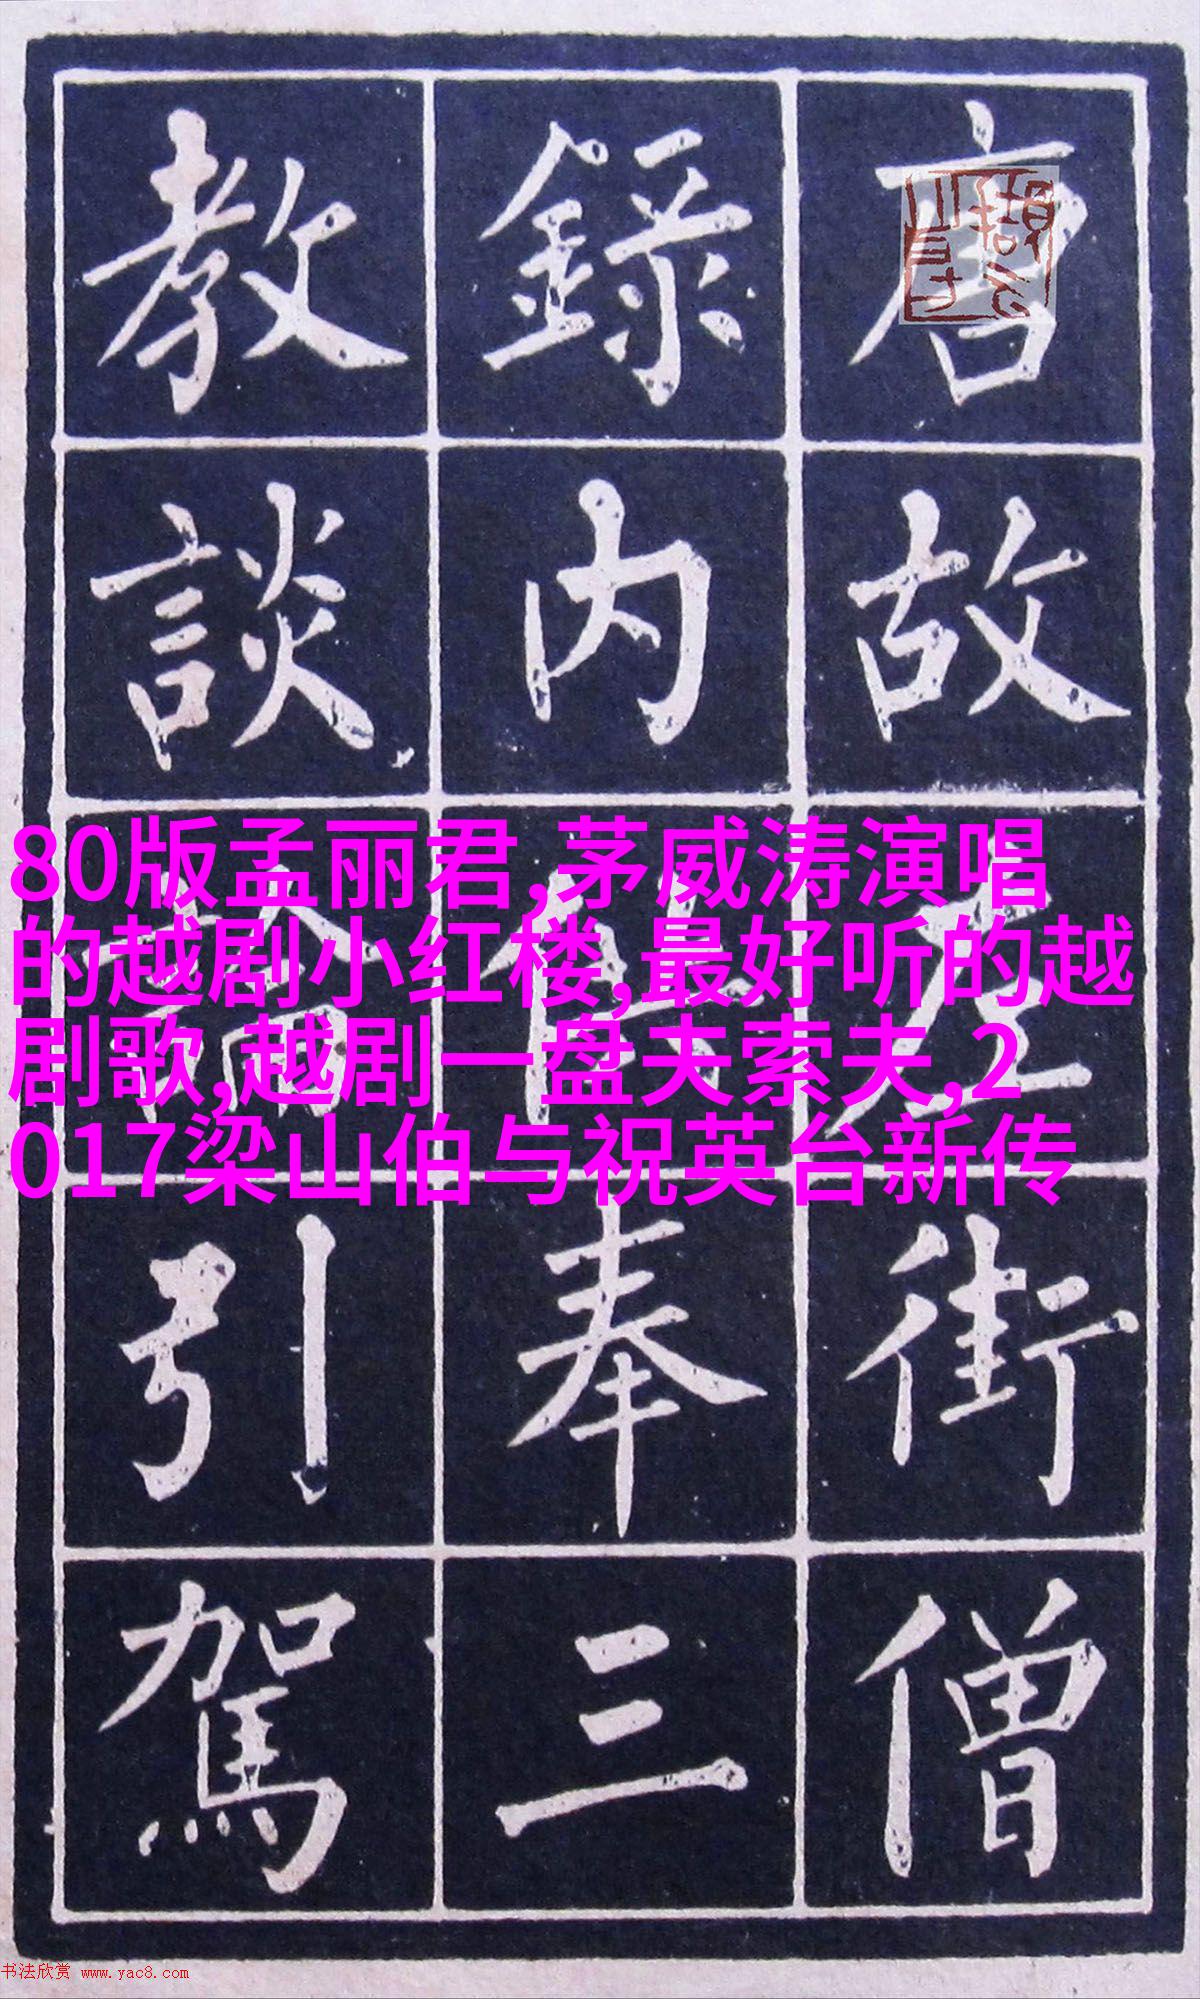 唐故左街僧
錄内供奉三
教談論引駕
80版孟丽君,茅威涛演唱
的越剧小红楼,最好听的越
剧歌,越剧一盘夫索夫,2
017梁山伯与祝英台新传
书法欣赏 www.yac8.com